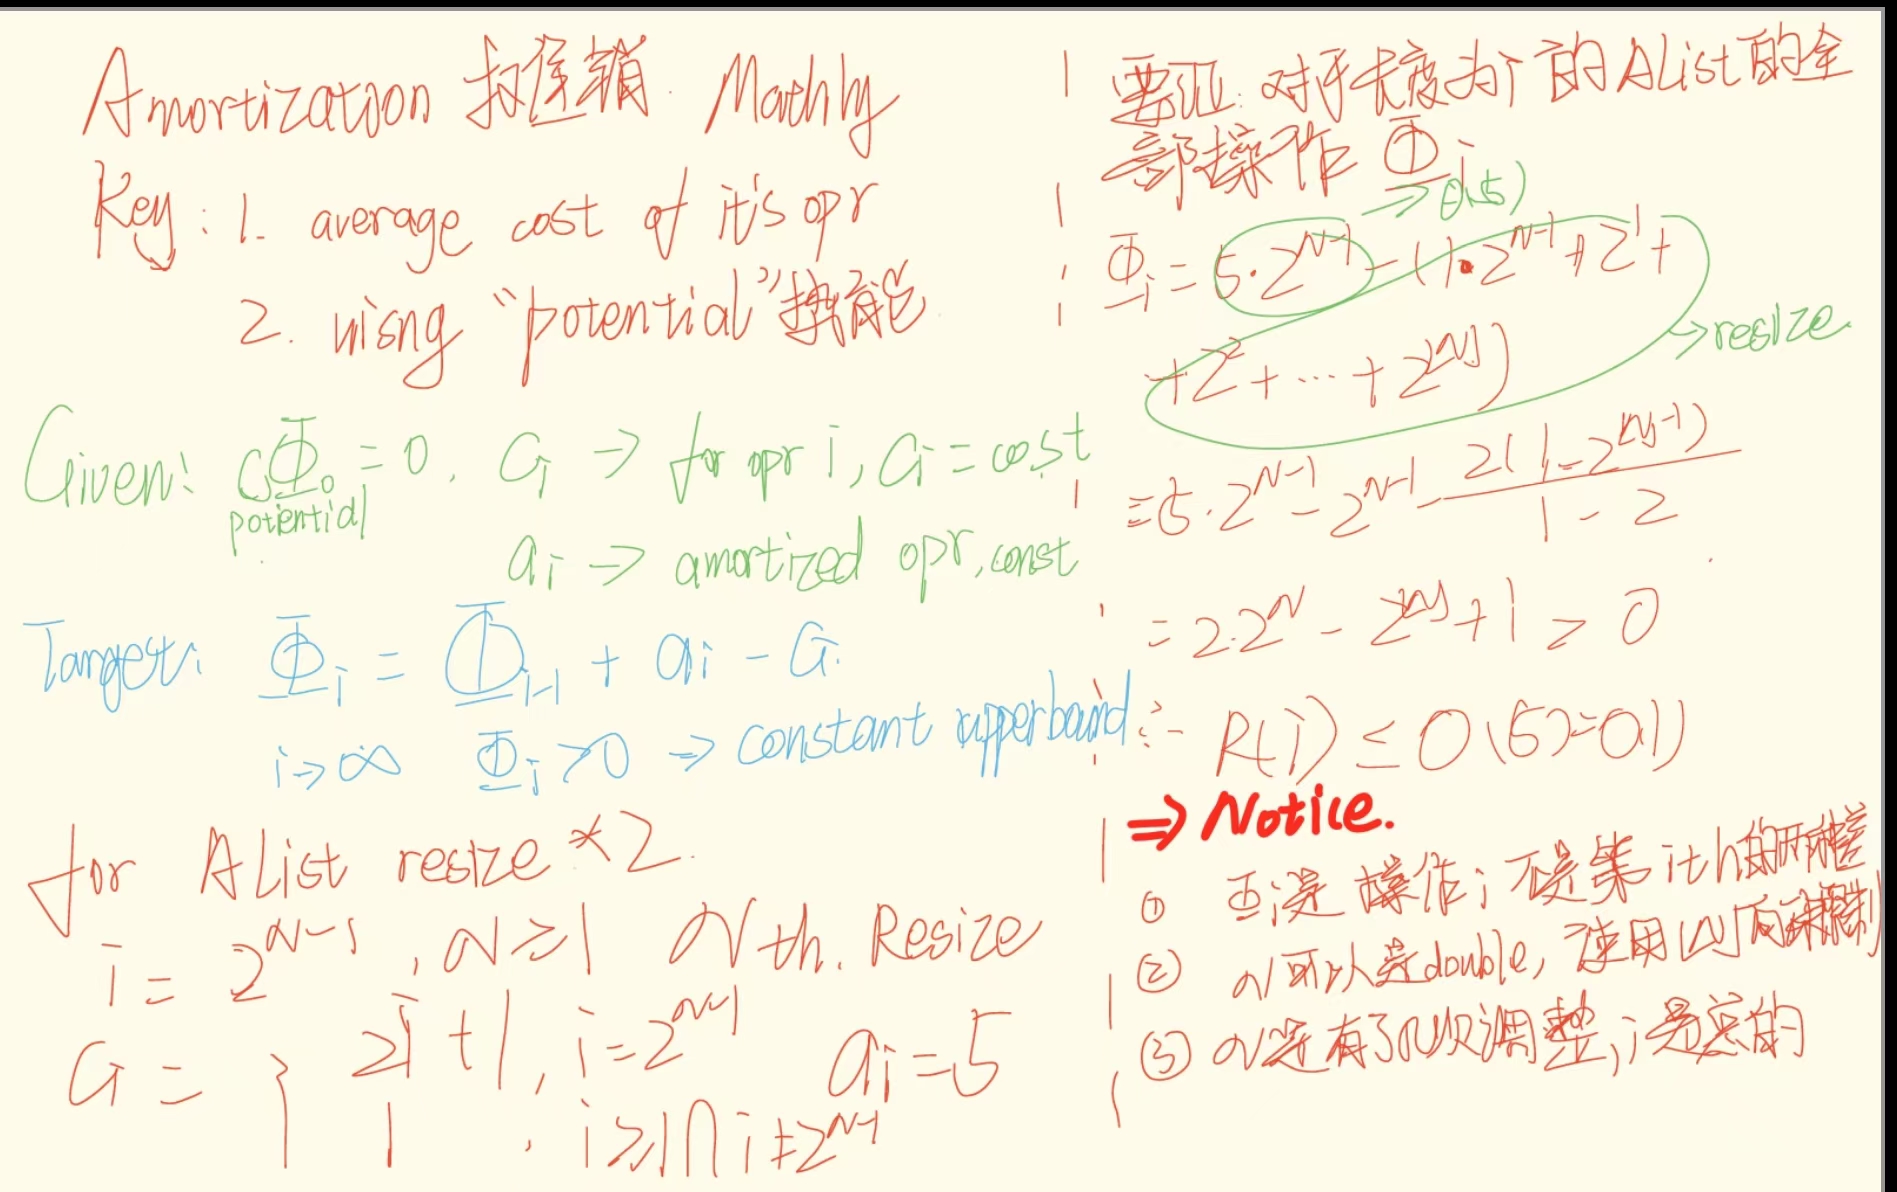 Amortization Mathly
Key: 1. average cost of it's opr
2. uisng "potential" 势能
Given: Φ₀ = 0. Ci → for opr i, Ci = cost
potential
ai → amortized opr, const
Target: Φi = Φi-1 + ai - Ci
i → ∞ Φi > 0 ⇒ constant upperbound
for AList resize *2
i = 2^{N-1}, N ≥ 1 Nth. Resize
Ci = { 2i + 1, i = 2^{N-1} ai = 5
1, i ≥ 1 ∩ i ≠ 2^{N-1}
要证: 对于长度为i的AList的全
部操作 Φi
→ O(5)
Φi = 5·2^{N-1} - (1·2^{N-1} + 2^1 +
+ 2^2 + ··· + 2^{⌊N⌋})
→ resize
= 5·2^{N-1} - 2^{N-1} - 2(1 - 2^{⌊N⌋-1}) / 1 - 2
= 2·2^N - 2^{⌊N⌋} + 1 > 0
∴ R(i) ≤ O(5) = O(1)
⇒ Notice.
① Φi是操作i 不是第ith的
② N可以是double, 使用⌊N⌋向
③ N是有了N次调整, i是总的